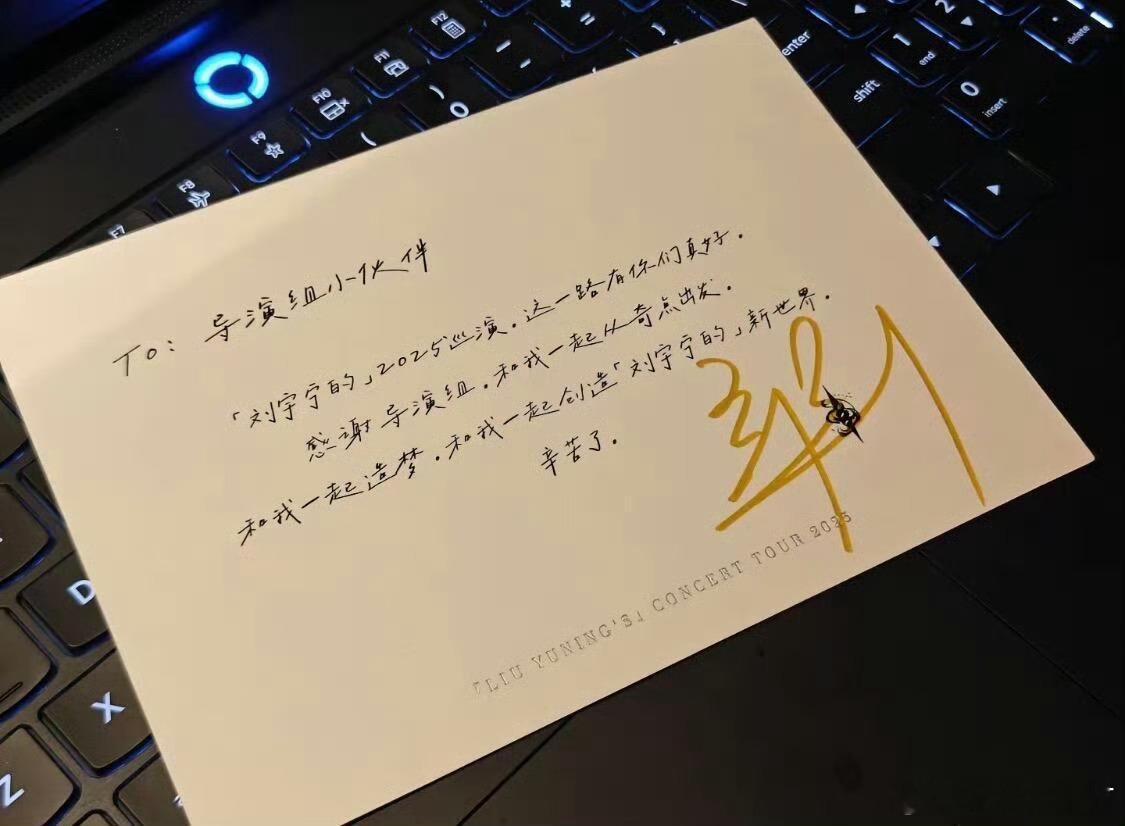 To: 导演组小伙伴
「刘宇宁的」2025巡演。这一路有你们真好。
感谢导演组。和我一起从奇点出发。
和我一起造梦。和我一起创造「刘宇宁的」新世界。
辛苦了。
「LIU YUNING'S」 CONCERT TOUR 2025
F12
F11
F10
F9
F8
F7
enter
shift
1
end
2
0
insert
delete
D
X
Z